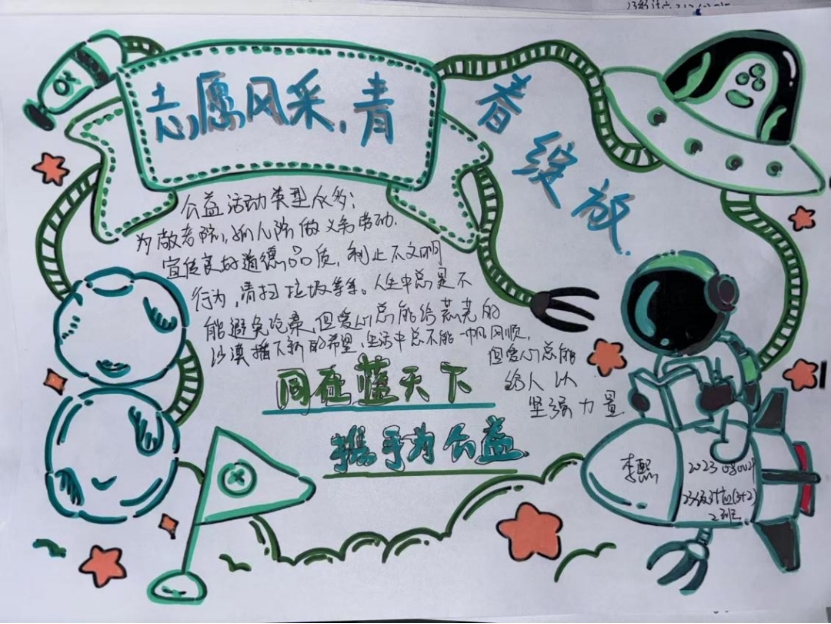 志愿风采，青
春绽放
公益活动类型众多：
为敬老院，孤儿院做义务劳动.
宣传良好道德品质，制止不文明
行为，清扫垃圾等等。人生中总是不
能避免沧桑，但爱心总能给荒芜的
沙漠播下新的希望，生活中总不能一帆风顺，
但爱心总能
给人以
坚强力量
同在蓝天下
携手为公益
李熙
2 班